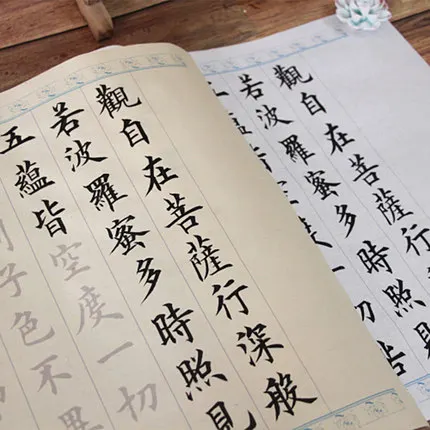 觀自在菩薩行深般
若波羅蜜多時照見
五蘊皆空度一切
利子色不異
觀自在菩薩行
若波羅蜜多時照見
切苦